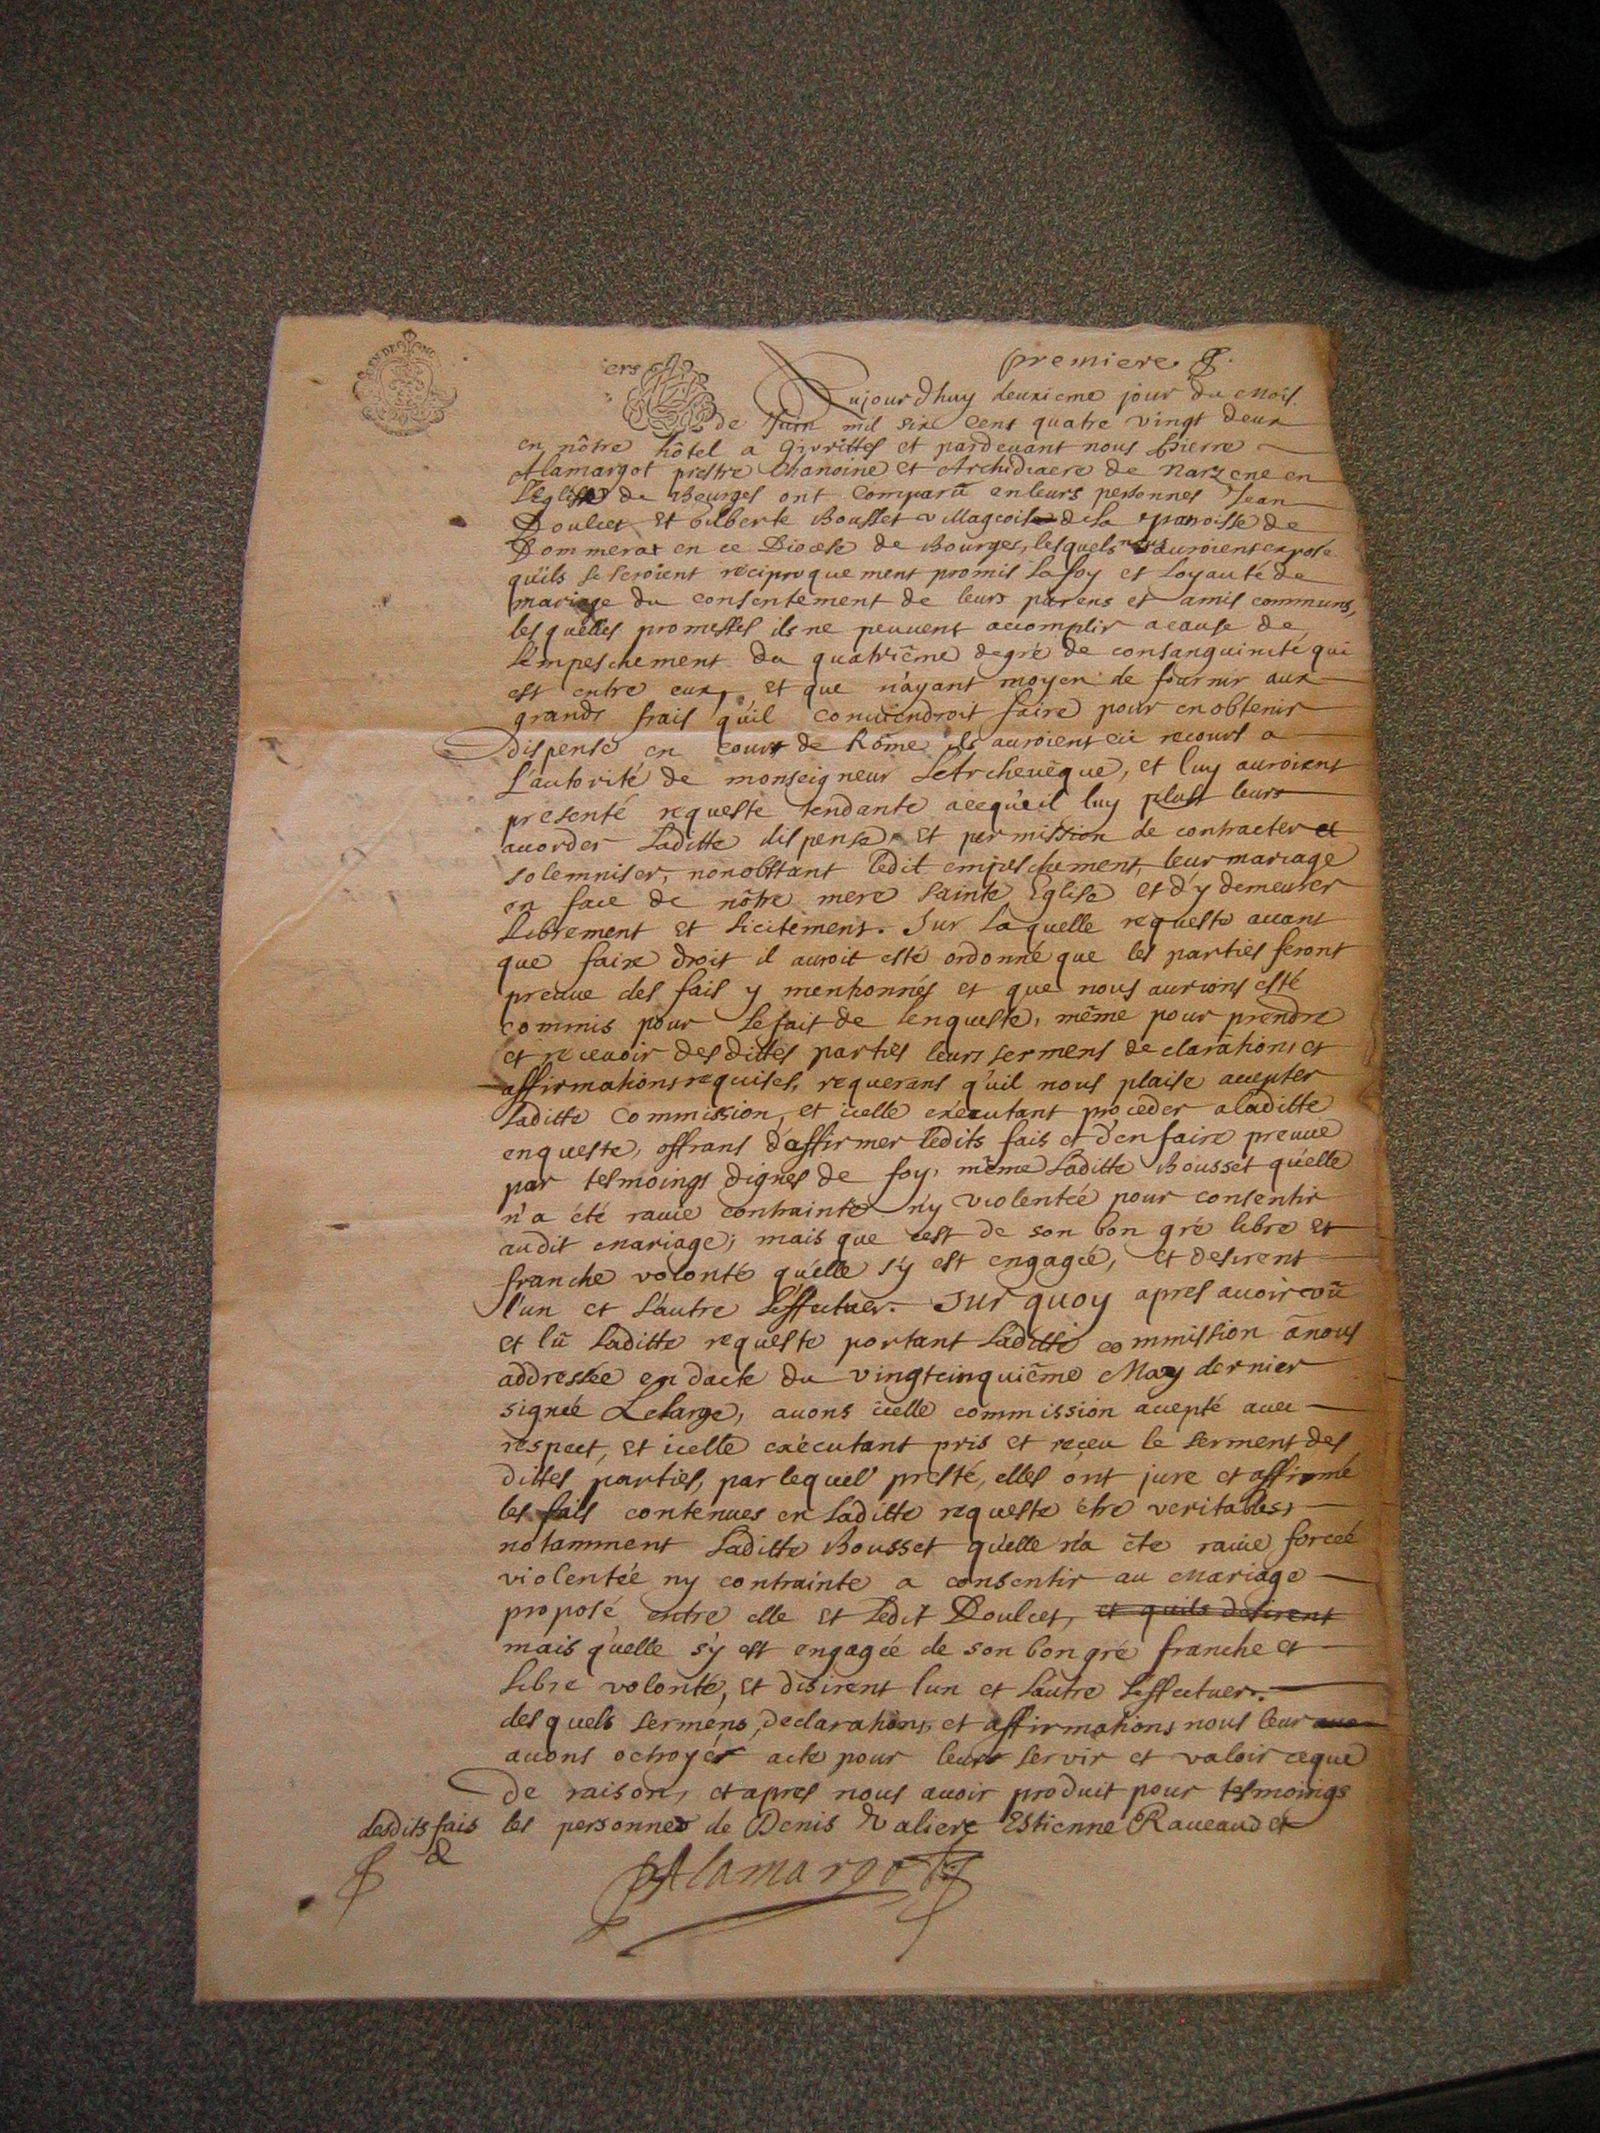 premiere
Aujourdhuy deuxieme jour du mois
de Juin mil six cent quatre vingt deux
en nôtre hôtel a Givrettes et pardevant nous Pierre
Alamargot prestre Chanoine et Archidiacre de Narzene en
l'Eglise de Bourges ont comparû en leurs personnes Jean
Doulcet et Gilberte Bousset villageois de la paroisse de
Dommerat en ce Diocese de Bourges, lesquels nous auroient exposé
qu'ils se seroient reciproquement promis la foy et loyauté de
mariage du consentement de leurs parens et amis communs,
lesquelles promesses ils ne peuvent accomplir a cause de
l'empeschement du quatriême degré de consanguinité qui
est entre eux, et que n'ayant moyen de fournir aux
grands frais qu'il conviendroit faire pour en obtenir
dispense en cour de Rôme ils auroient eü recours a
l'autorité de monseigneur L'Archevêque, et luy auroient
presenté requeste tendante acequ'il luy plust leurs
accorder laditte dispense et permission de contracter et
solemniser, nonobstant ledit empeschement, leur mariage
en face de nôtre mere sainte Eglise et d'y demeurer
librement et licitement. Sur laquelle requeste avant
que faire droit il auroit esté ordonné que les parties feront
preuve des fais y mentionnés et que nous aurions esté
commis pour le fait de l'enqueste, même pour prendre
et recevoir desdittes parties leurs sermens declarations et
affirmations requises, requerans qu'il nous plaise accepter
laditte commission, et icelle executant proceder a laditte
enqueste, offrans d'affirmer ledits fais et d'en faire preuve
par tesmoings dignes de foy, même laditte Bousset qu'elle
n'a été ravie contrainte ny violentée pour consentir
audit mariage; mais que c'est de son bon gré libre et
franche volonté qu'elle s'y est engagée, et desirent
l'un et l'autre l'effectuer. Sur quoy apres avoir veû
et lû laditte requeste portant laditte commission a nous
addressée en datte du vingtcinquiême May dernier
signée Lelarge, avons icelle commission accepté avec
respect, et icelle exécutant pris et reçeu le serment des
dittes parties, par lequel presté, elles ont juré et affirmé
les fais contenues en laditte requeste être veritables,
notamment laditte Bousset qu'elle n'a ête ravie forcée
violentée ny contrainte a consentir au mariage
proposé entre elle et ledit Doulcet, et quils desirent
mais qu'elle s'y est engagée de son bon gré franche et
libre volonté, et desirent l'un et l'autre l'effectuer.
desquels sermens, declarations et affirmations nous leur
avons octroyér acte pour leurs servir et valoir ceque
de raison, et apres nous avoir produit pour tesmoings
desdits fais les personnes de Denis Valiere Estienne Raveaud et
Alamargot